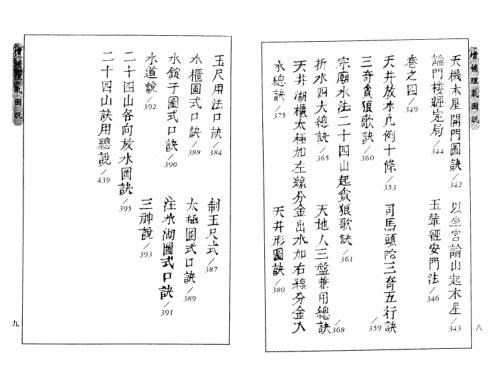 增補理氣圖說
八
天機木星開門圖訣/342
以坐宮論山起木星/343
論門樓經定局/344
玉輦經安門法/346
卷之四/349
天井放水凡例十條/353
司馬頭陀三奇五行訣/359
三奇貪狼歌訣/360
宗廟水法二十四山起貪狼歌訣/361
折水四大總訣/365
天地人三盤兼用總訣/368
天井湖櫃太極加左線分金出水加右線分金入水總訣/375
天井形圖訣/380
增補理氣圖說
九
玉尺用法口訣/384
制玉尺式/387
水櫃圖式口訣/388
太極圖式口訣/389
水錠子圖式口訣/390
注水湖圖式口訣/391
水道說/392
三神說/393
二十四山各向放水圖訣/395
二十四山訣用總說/439